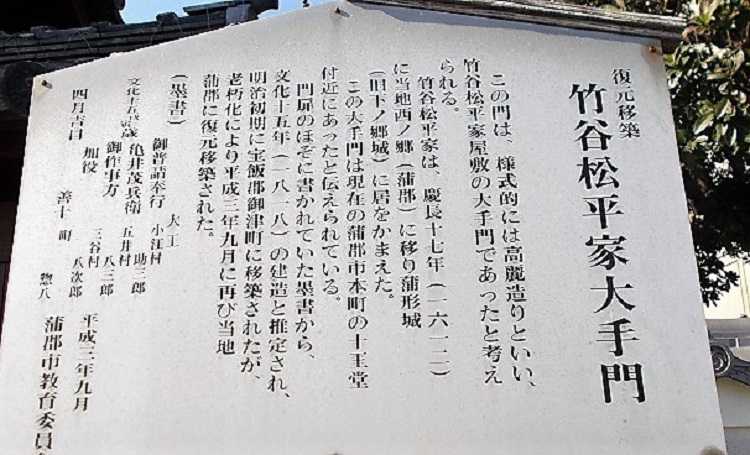 復元移築
竹谷松平家大手門
この門は、様式的には高麗造りといい、
竹谷松平家屋敷の大手門であったと考え
られる。
竹谷松平家は、慶長十七年(一六一二)
に当地西ノ郷(蒲郡)に移り蒲形城
(旧下ノ郷城)に居をかまえた。
この大手門は現在の蒲郡市本町の十王堂
付近にあったと伝えられている。
門扉のほぞに書かれていた墨書から、
文化十五年(一八一八)の建造と推定され、
明治初期に宝飯郡御津町に移築されたが、
老朽化により平成三年九月に再び当地
蒲郡に復元移築された。
(墨書)
大工
御普請奉行 小江村
亀井茂兵衛 五井村 助三郎
御作事方 八三郎
加役 三谷村 八次郎
善十 町 惣八
文化十五
四月吉日
平成三年九月
蒲郡市教育委員